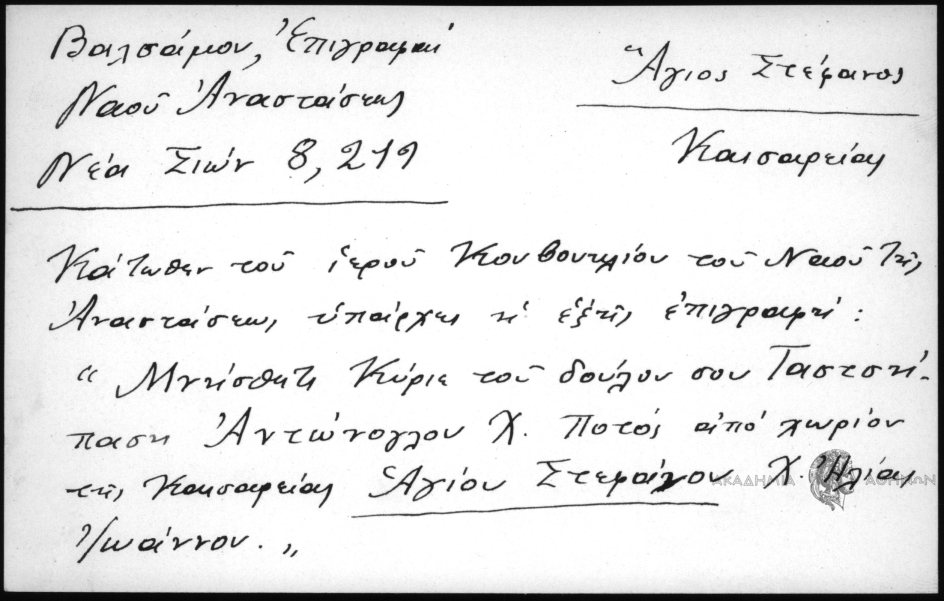 Βαλσάμου, Ἐπιγραφαὶ
Ναοῦ Ἀναστάσεως
Νέα Σιών 8, 219
Ἅγιος Στέφανος
Καισαρείας
Κάτωθεν τοῦ ἱεροῦ Κουβουκλίου τοῦ Ναοῦ τῆς
Ἀναστάσεως ὑπάρχει ἡ ἑξῆς ἐπιγραφή :
“ Μνήσθητι Κύριε τοῦ δούλου σου
Ἀντώνογλου Χ. ἀπό χωρίον
τῆς Καισαρείας Ἁγίου Στεφάνου Χ. Ἠλίας
Ἰωάννου. „
ΑΚΑΔΗΜΙΑ ΑΘΗΝΩΝ